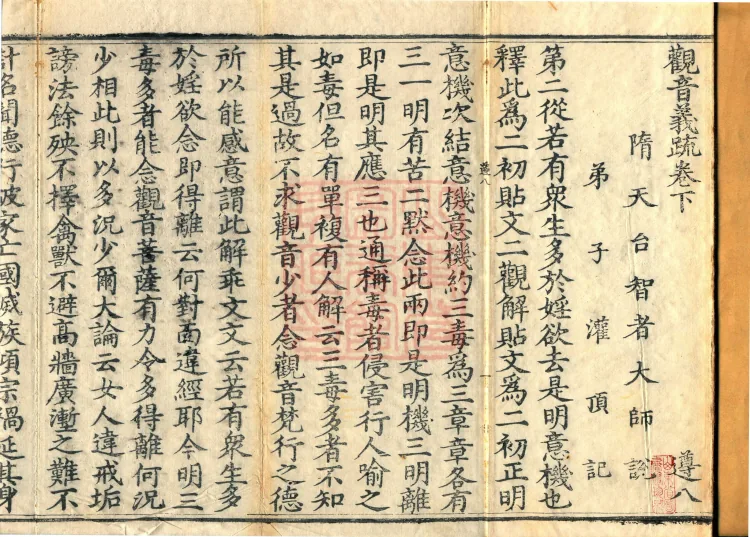 觀音義疏卷下　遵八
隋天台智者大師說
弟子灌頂記
第二從若有衆生多於婬欲去是明意機也
釋此爲二初貼文二觀解貼文爲二初正明
意機次結意機意機約三毒爲三章章各有
三一明有苦二默念此兩即是明機三明離
即是明其應三也通稱毒者侵害行人喻之
如毒但名有單複有人解云三毒多者不知
其是過故不求觀音少者念觀音梵行之德
所以能感意謂此解乖文文云若有衆生多
於婬欲念即得離云何對面違經耶今明三
毒多者能念觀音菩薩有力令多得離何況
少相此則以多況少爾大論云女人違戒垢
謗法餘殃不擇禽獸不避高牆廣塹之難不
計名聞德行破家亡國滅族項宗禍延其身